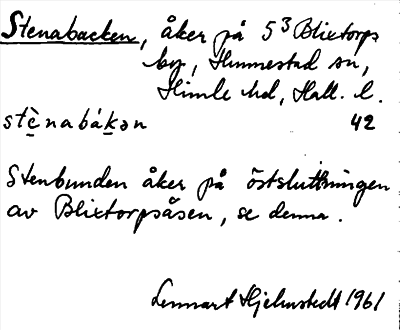 Stenabacken, åker på 5³ Blixtorps
by, Himmestad sn,
Himle hd, Hall. l.
stè̱nabáḵən 42
Stenbunden åker på östsluttningen
av Blixtorpsåsen, se denna.
Lennart Hjelmstedt 1961